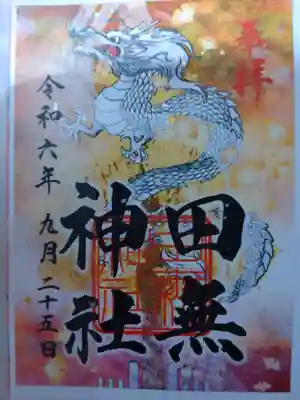 奉拝
田無
神社
令和六年 九月 二十五日